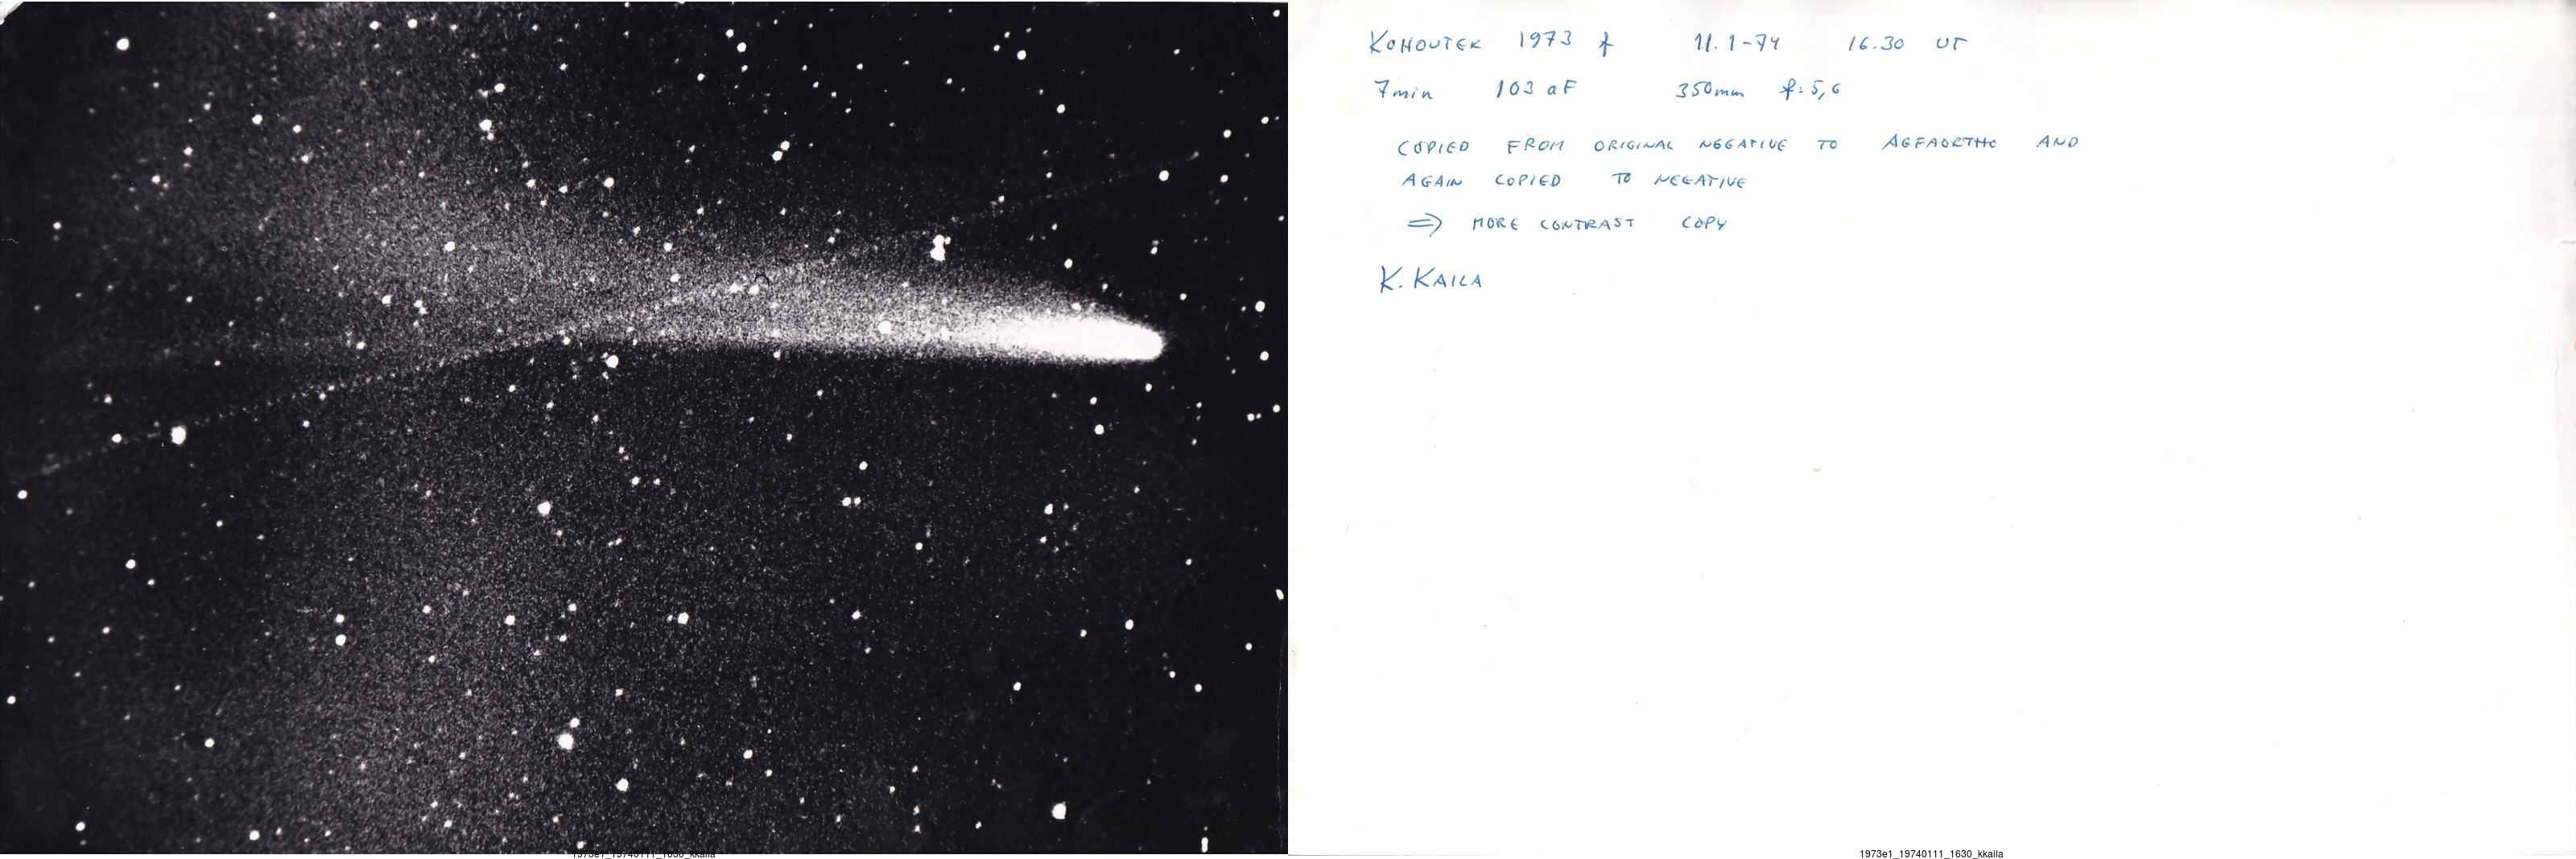 KOHOUTEK 1973 f 11.1-74 16.30 UT
7min 103 aF 350mm f:5,6
COPIED FROM ORIGINAL NEGATIVE TO AGFAORTHO AND
AGAIN COPIED TO NEGATIVE
⇒ MORE CONTRAST COPY
K. KAILA
1973e1_19740111_1630_kkaila
1973e1_19740111_1630_kkaila